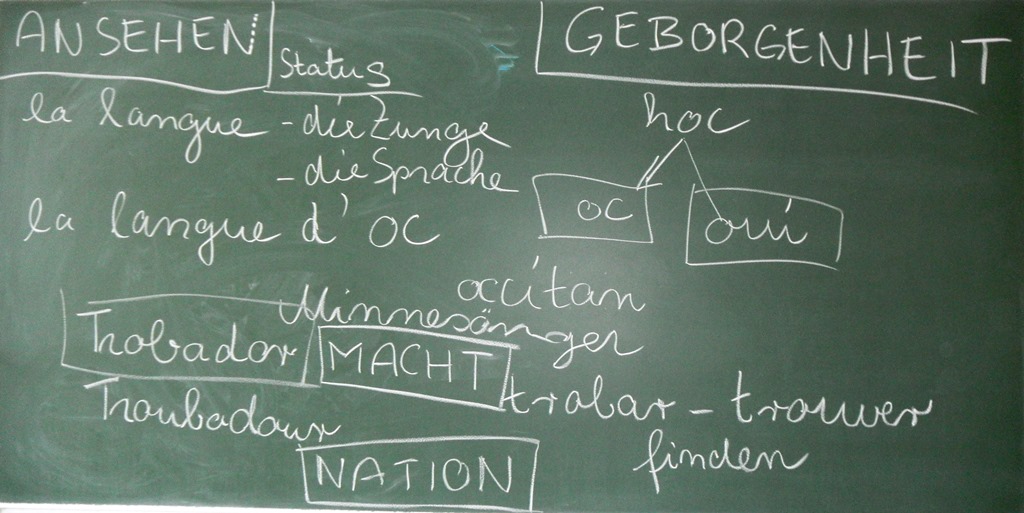 ANSEHEN
Status
GEBORGENHEIT
la langue - die Zunge
- die Sprache
la langue d' oc
hoc
oc
oui
occitan
Minnesänger
Trobador
MACHT
Troubadour
trobar - trouver
finden
NATION